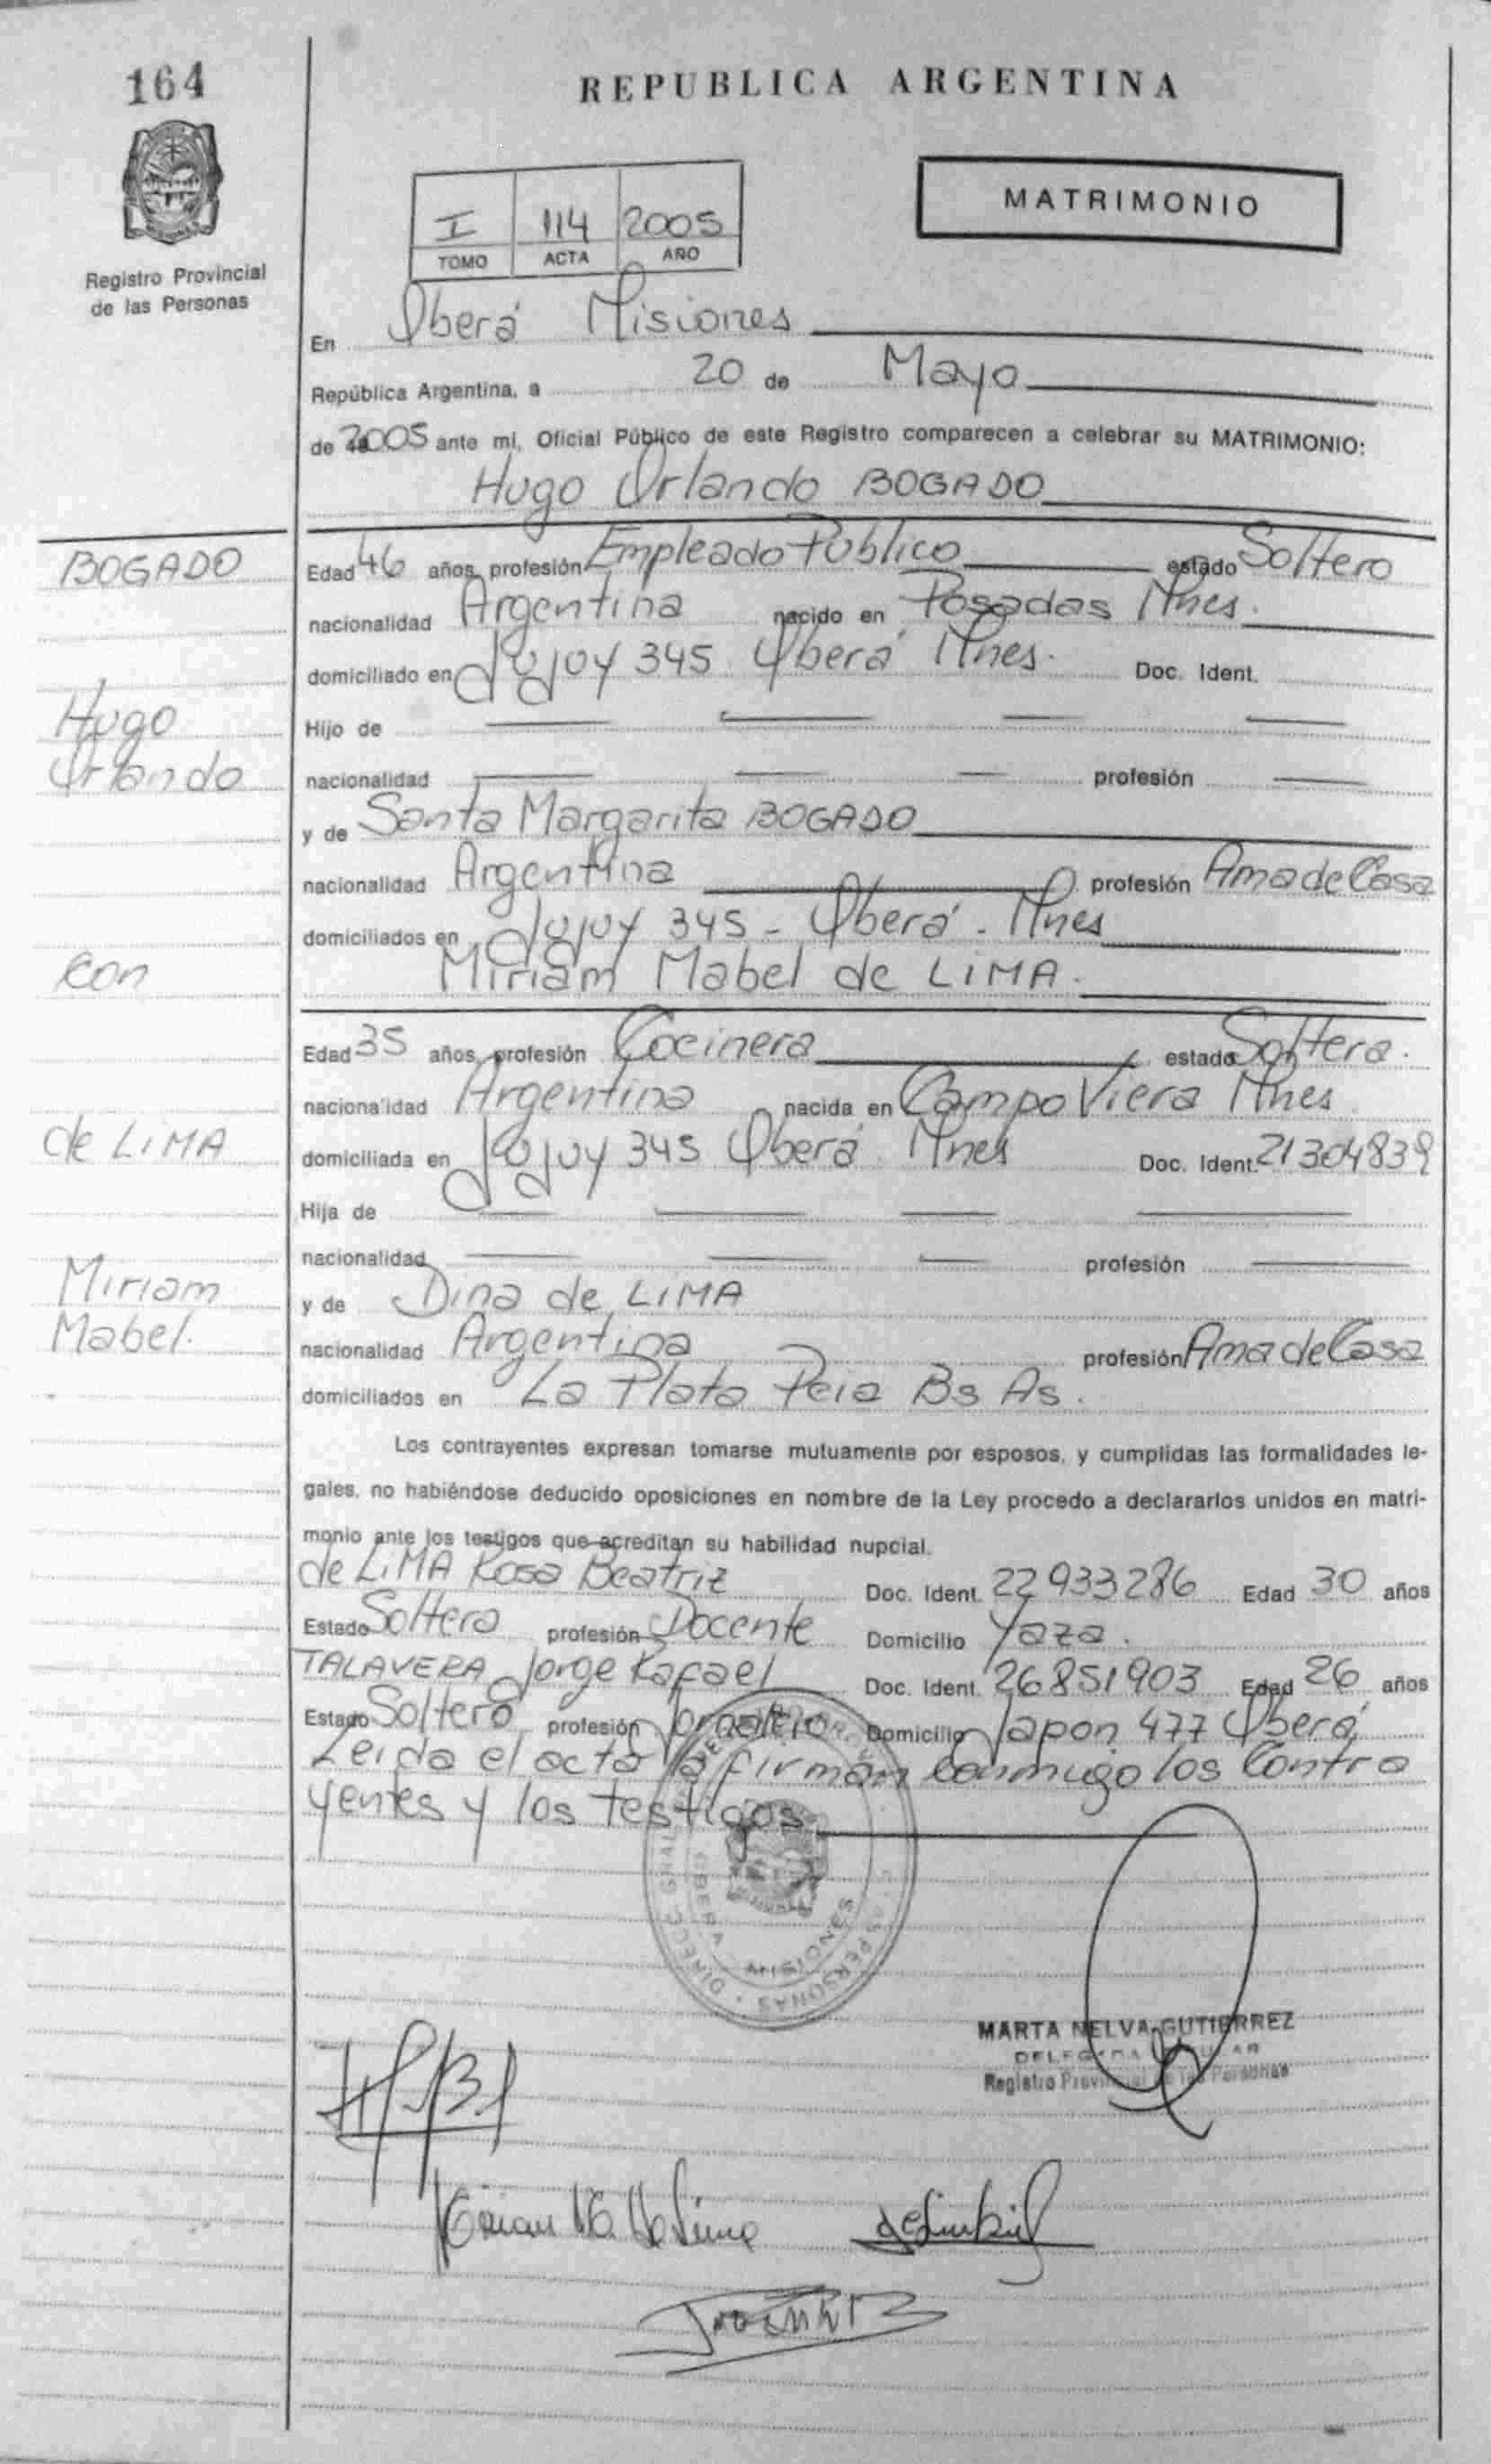 164
REPUBLICA ARGENTINA
Registro Provincial
de las Personas
I 114 2005
TOMO ACTA AÑO
MATRIMONIO
En Oberá Misiones
República Argentina, a 20 de Mayo
de 2005 ante mi, Oficial Público de este Registro comparecen a celebrar su MATRIMONIO:
Hugo Orlando BOGADO
BOGADO
Hugo
Orlando
con
de LiMA
Miriam
Mabel.
Edad 46 años, profesión Empleado Público estado Soltero
nacionalidad Argentina nacido en Posadas Mnes.
domiciliado en Jujuy 345 Oberá Mnes. Doc. Ident.
Hijo de
nacionalidad profesión
y de Santa Margarita BOGADO
nacionalidad Argentina profesión Ama de Casa
domiciliados en Jujuy 345 - Oberá - Mnes
Miriam Mabel de LiMA.
Edad 35 años, profesión Cocinera estado Soltera.
nacionalidad Argentina nacida en Campo Viera Mnes
domiciliada en Jujuy 345 Oberá Mnes Doc. Ident. 21304839
Hija de
nacionalidad profesión
y de Dina de LIMA
nacionalidad Argentina profesión Ama de Casa
domiciliados en La Plata Pcia Bs As.
Los contrayentes expresan tomarse mutuamente por esposos, y cumplidas las formalidades le-
gales, no habiéndose deducido oposiciones en nombre de la Ley procedo a declararlos unidos en matri-
monio ante los testigos que acreditan su habilidad nupcial.
de LiMA Rosa Beatriz Doc. Ident. 22933286 Edad 30 años
Estado Soltera profesión Docente Domicilio Yaza.
TALAVERA Jorge Rafael Doc. Ident. 26851903 Edad 26 años
Estado Soltero profesión Jornalero Domicilio Japon 477 Oberá
Leida el acta la firman conmigo los Contra
yentes y los testigos
OBERA MISIONES
MARTA NELVA GUTIERREZ
DELEGADA TITULAR
Registro Provincial de las Personas